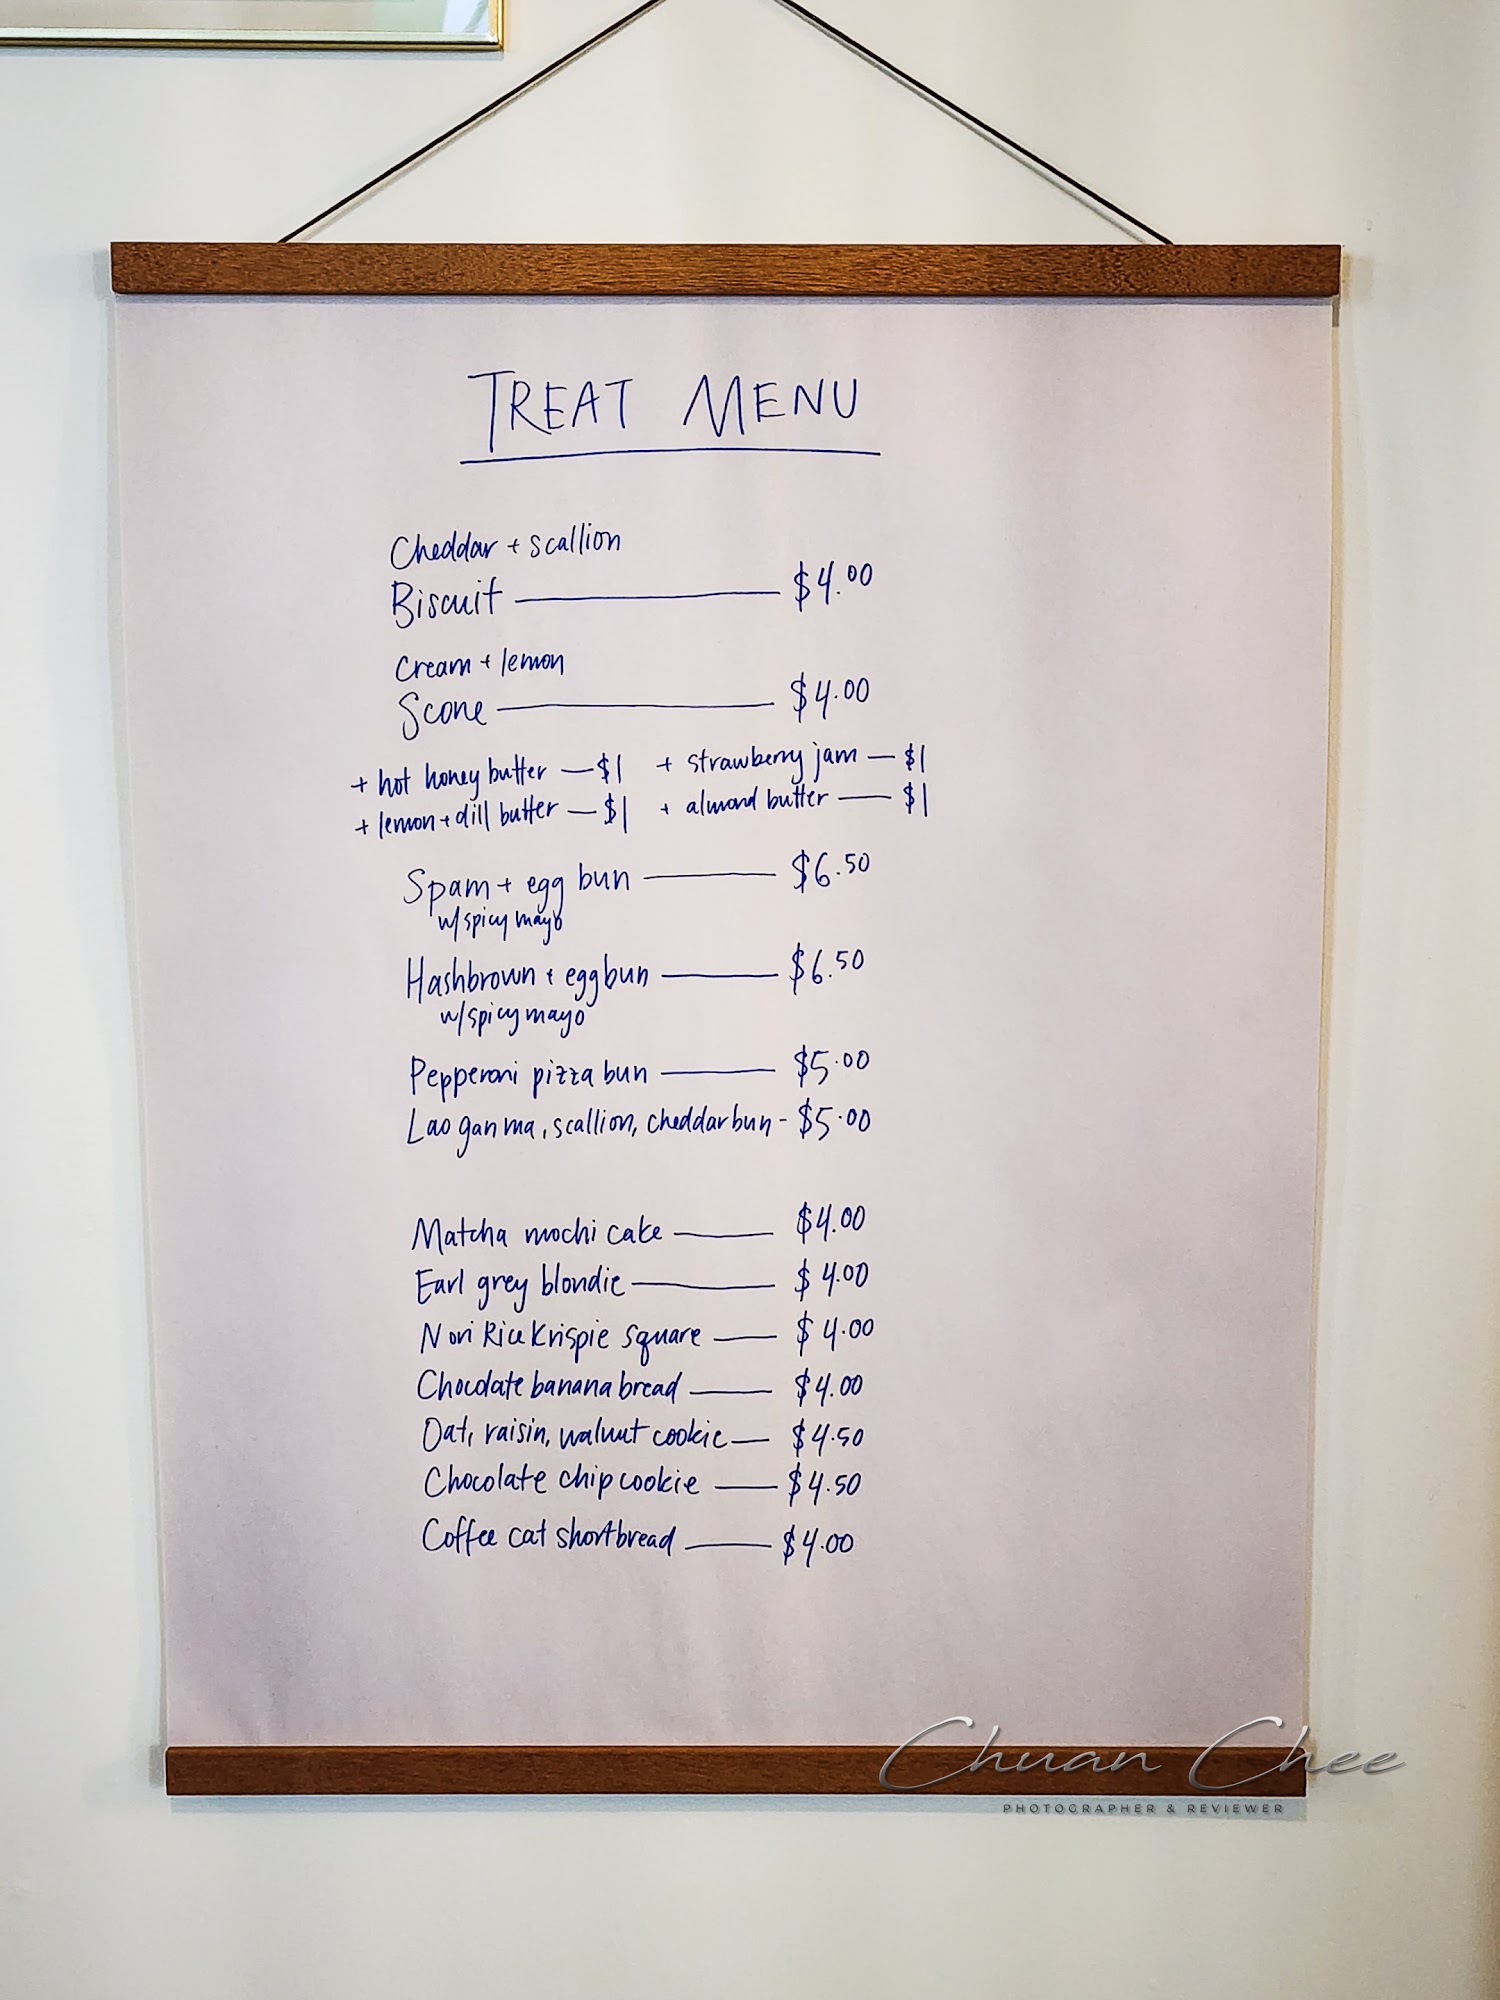 TREAT MENU
Cheddar + scallion
Biscuit — $4.00
Cream + lemon
Scone — $4.00
+ hot honey butter — $1 + strawberry jam — $1
+ lemon + dill butter — $1 + almond butter — $1
Spam + egg bun — $6.50
w/ spicy mayo
Hashbrown + egg bun — $6.50
w/ spicy mayo
Pepperoni pizza bun — $5.00
Lao gan ma, scallion, cheddar bun - $5.00
Matcha mochi cake — $4.00
Earl grey blondie — $4.00
Nori Rice Krispie square — $4.00
Chocolate banana bread — $4.00
Oat, raisin, walnut cookie — $4.50
Chocolate chip cookie — $4.50
Coffee cat shortbread — $4.00
Chuan Chee
PHOTOGRAPHER & REVIEWER